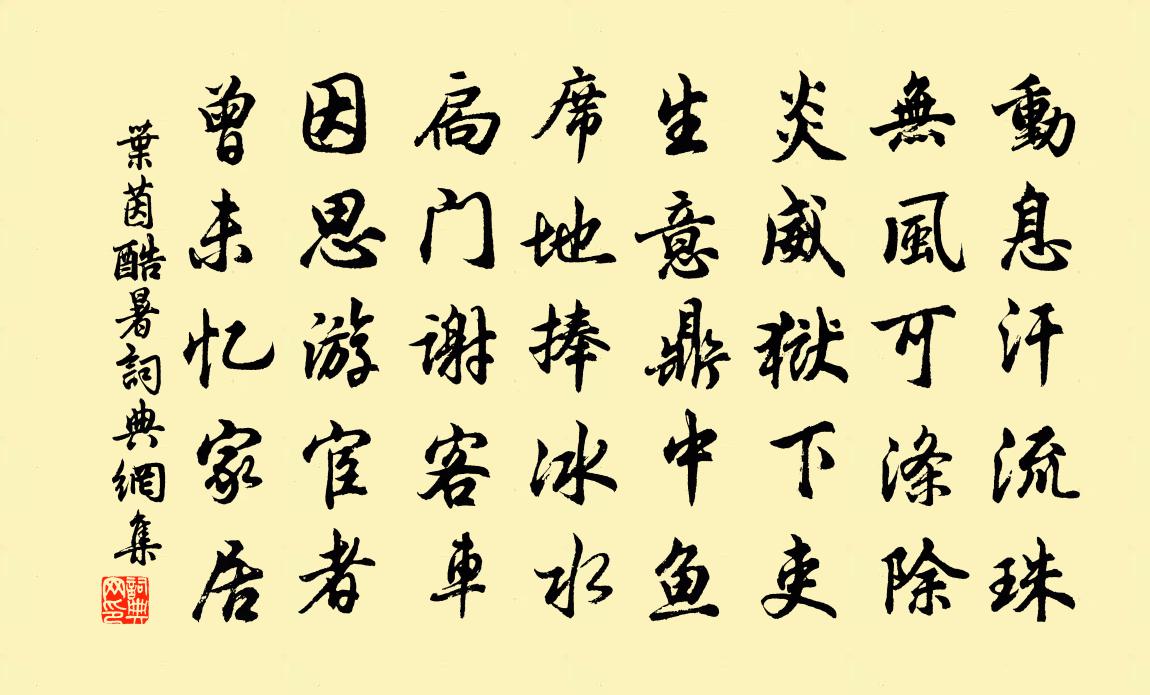 動息汗流珠
無風可滌除
炎威獄下吏
生意鼎中魚
席地捧冰水
扃门謝客車
因思游宦者
曾未忆家居
葉茵酷暑詞典網集
詞典网印